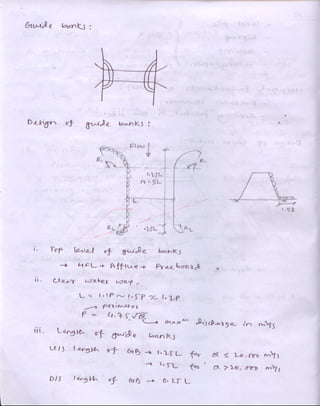 Guide banks :
Design of guide banks :
Flow
R1 R1
1.25L
or 1.5L
L
R2 .25L R2
1.5D
i. Top level of guide banks
→ HFL + Afflux + Free board
ii. Clear water way,
L = 1.1P ~ 1.5P ≈ 1.2P
→ perimeter
P = 4.75√Q → maxm discharge in m³/s
iii. Length of guide banks
U/S length of GB → 1.25L for Q ≤ 20,000 m³/s
→ 1.5L for Q > 20,000 m³/s
D/S length of GB → 0.25L